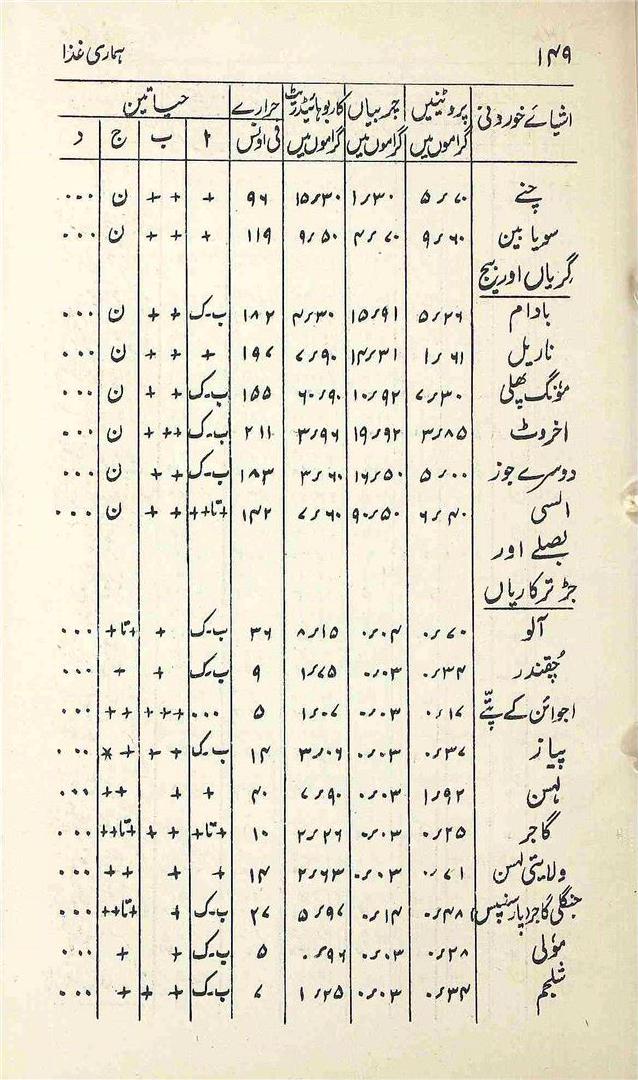 ۱۴۹ ہماری غذا
اشیائے خوردنی پروٹینیں گراموں میں چربیاں گراموں میں کاربوہائیڈریٹ گراموں میں حرارے فی اونس حیاتین
ا ب ج د
چنے ۵/۷۰ ۱/۳۰ ۱۵/۳۰ ۹۶ + ++ ن ...
سویا بین ۹/۶۰ ۴/۷۰ ۹/۵۰ ۱۱۹ + ++ ن ...
گریاں اور بیج
بادام ۵/۲۶ ۱۵/۹۱ ۴/۳۰ ۱۸۲ ب۔ک ++ ن ...
ناریل ۱/۶۱ ۱۴/۳۱ ۷/۹۰ ۱۹۷ + ++ ن ...
مونگ پھلی ۷/۳۰ ۱۰/۹۲ ۶/۹۰ ۱۵۵ ب۔ک ++ ن ...
اخروٹ ۳/۸۵ ۱۹/۹۲ ۳/۹۶ ۲۱۱ ب۔ک +++ ن ...
دوسرے جوز ۵/۰۰ ۱۶/۵۰ ۳/۶۰ ۱۸۳ ب۔ک ++ ن ...
السی ۶/۴۰ ۹۰/۵۰ ۷/۶۰ ۱۴۲ +تا++ ++ ن ...
بصلے اور
جڑ ترکاریاں
آلو ۰/۷۰ ۰/۰۴ ۸/۱۵ ۳۶ ب۔ک + +تا+ ...
چقندر ۰/۳۴ ۰/۰۳ ۱/۷۵ ۹ ب۔ک + + ...
اجوائن کے پتے ۰/۱۷ ۰/۰۳ ۱/۰۷ ۵ ... +++ ++ ...
پیاز ۰/۳۷ ۰/۰۳ ۳/۰۶ ۱۴ ب۔ک ++ +* ...
لہسن ۱/۹۲ ۰/۰۳ ۷/۹۰ ۴۰ + + ++ ...
گاجر ۰/۲۵ ۰/۰۳ ۲/۲۶ ۱۰ +تا+ ++ +تا++ ...
ولایتی لہسن ۰/۷۱ ۰/۰۳ ۲/۶۳ ۱۴ + + ++ ...
جنگلی گاجر (پارسنپس) ۰/۴۸ ۰/۱۴ ۵/۹۷ ۲۷ ب۔ک + +تا++ ...
مولی ۰/۲۸ ۰/۰۳ ۰/۹۶ ۵ ب۔ک + + ...
شلجم ۰/۳۴ ۰/۰۳ ۱/۲۵ ۷ ب۔ک ++ + ...